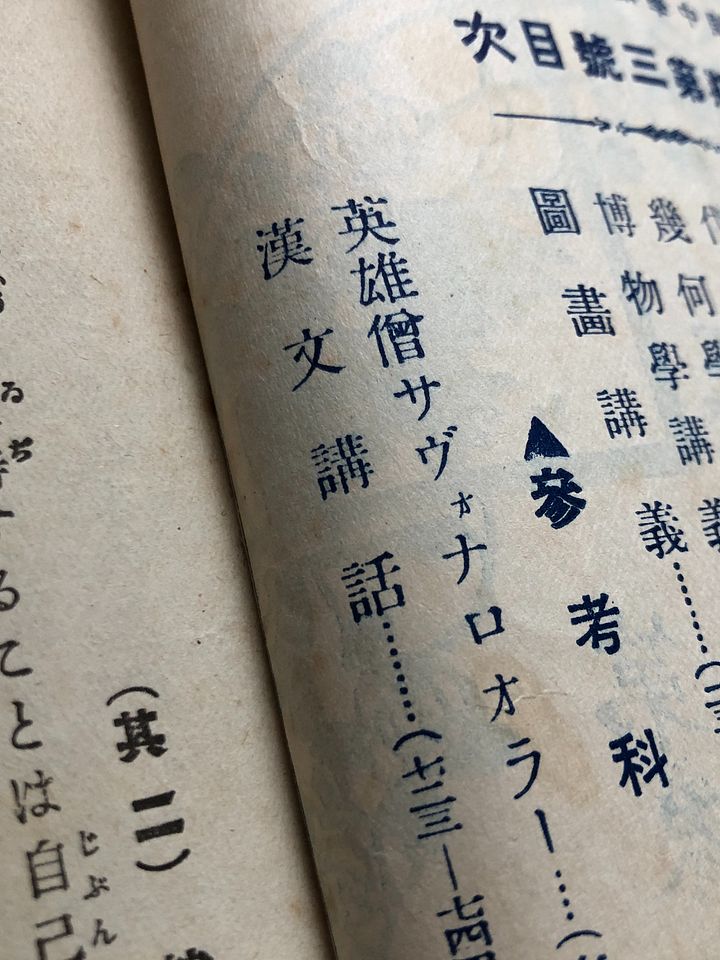 第三號目次
幾何學
博物學講義
圖畫講義……(
▲參考科
英雄僧サヴォナロオラー……(
漢文講話………(七二三―七四
(其二)
ることは自己
じぶん